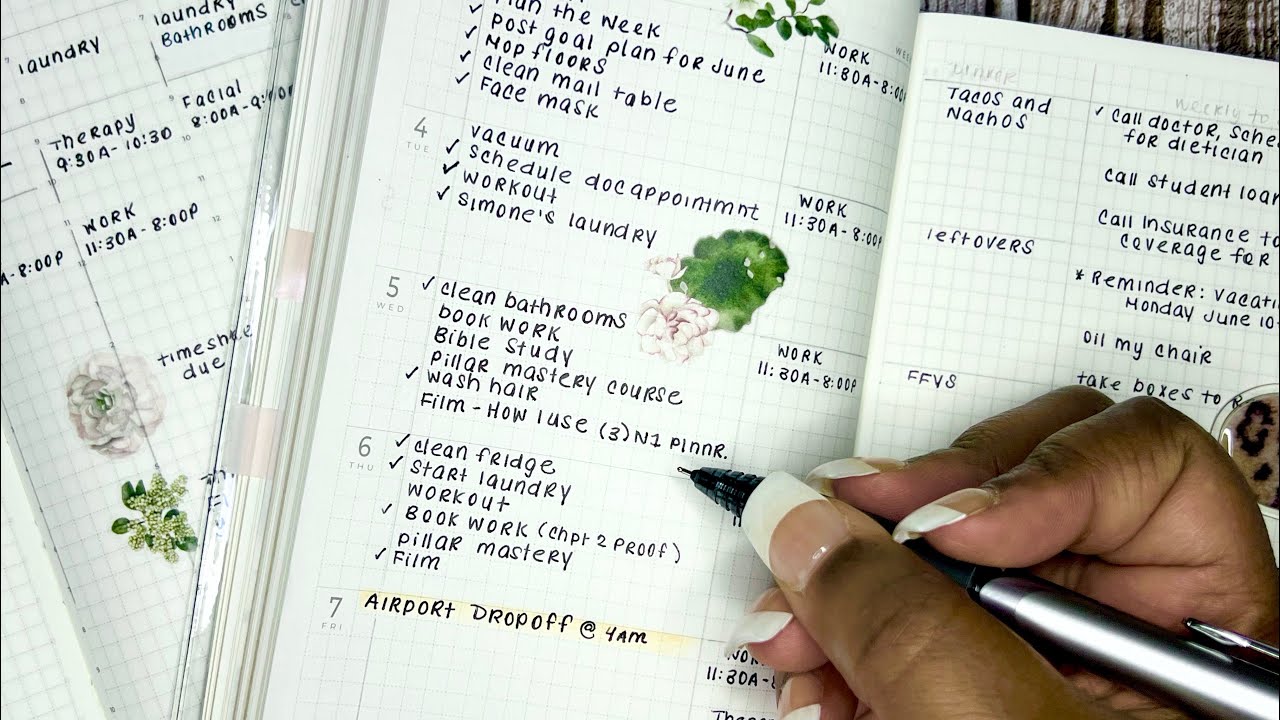 laundry
laundry
Bathrooms
Therapy
9:30A-10:30
Facial
WORK
11:30A-8:00P
A-8:00P
timeshare
due
Plan the week
Post goal plan for June
✓ Mop floors
✓ clean mail table
✓ Face mask
WORK
11:30A-8:00P
4
TUE
vacuum
✓ Schedule doc appointmnt
✓ workout
✓ Simone's laundry
WORK
11:30A-8:00P
5
WED
✓ clean bathrooms
Book Work
Bible Study
Pillar Mastery Course
✓ wash hair
Film - How I use (3) N1 Plnnr.
WORK
11:30A-8:00P
6
THU
✓ clean fridge
✓ Start laundry
workout
✓ Book Work (Chpt 2 Proof)
Pillar Mastery
✓ Film
7
FRI
AIRPORT DROPOFF @ 4AM
11:30A-8
Dinner
Tacos and
Nachos
leftovers
FFYS
weekly to
✓ Call doctor,
for dietician
call student
Call Insurance
coverage for
* Reminder:
Monday June 10
Oil my chair
take boxes to